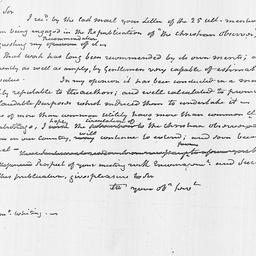 Sir
I rec'd by the last mail your letter of the 25 ult. mention
being engaged in the Republication of "The Christian Observer,
questing my opinion of it
recommendation
That work has long been recommended by its own merits; a
ently as well as amply, by Gentlemen very capable of estimat
value. In my opinion it has been conducted in a man
ly reputable to the authors; and well calculated to prom
laudable purposes which induced them to undertake it
of more than common utility have more than common cl
hope circulation of
I wish the to the Christian Observer
will
in our country, continue to extend; and soon becom
from
Prospect of your meeting with Encouragem.t and Succ
this publication, gives pleasure to Sir
your ob.t serv.t
Writing